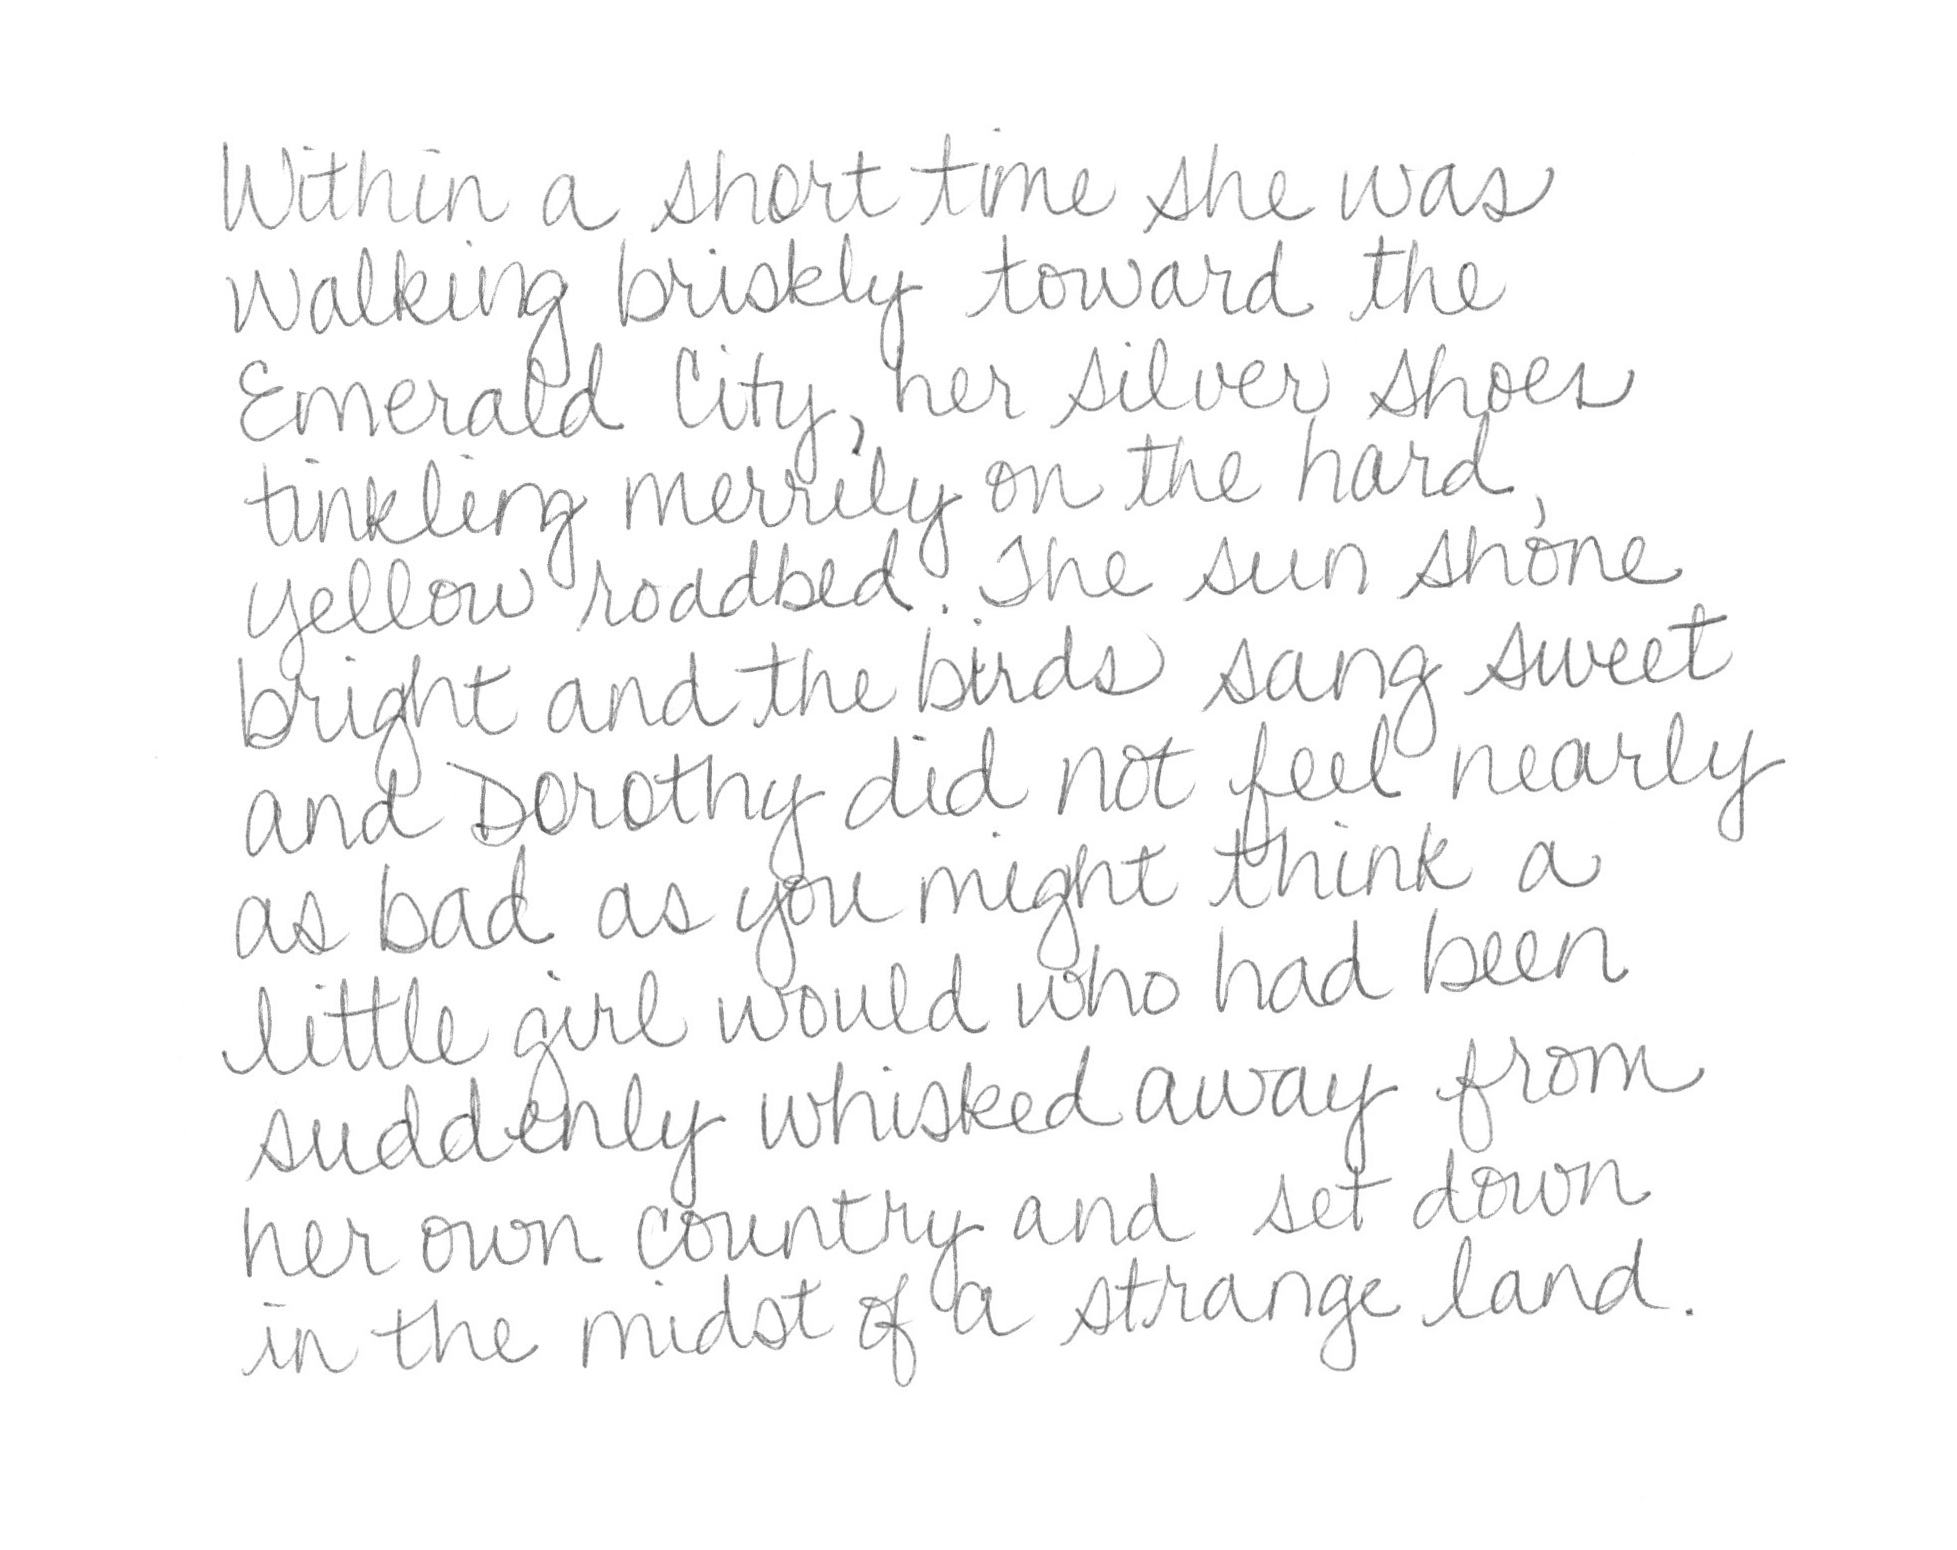 Within a short time she was
walking briskly toward the
Emerald City, her silver shoes
tinkling merrily on the hard,
yellow roadbed. The sun shone
bright and the birds sang sweet
and Dorothy did not feel nearly
as bad as you might think a
little girl would who had been
suddenly whisked away from
her own country and set down
in the midst of a strange land.